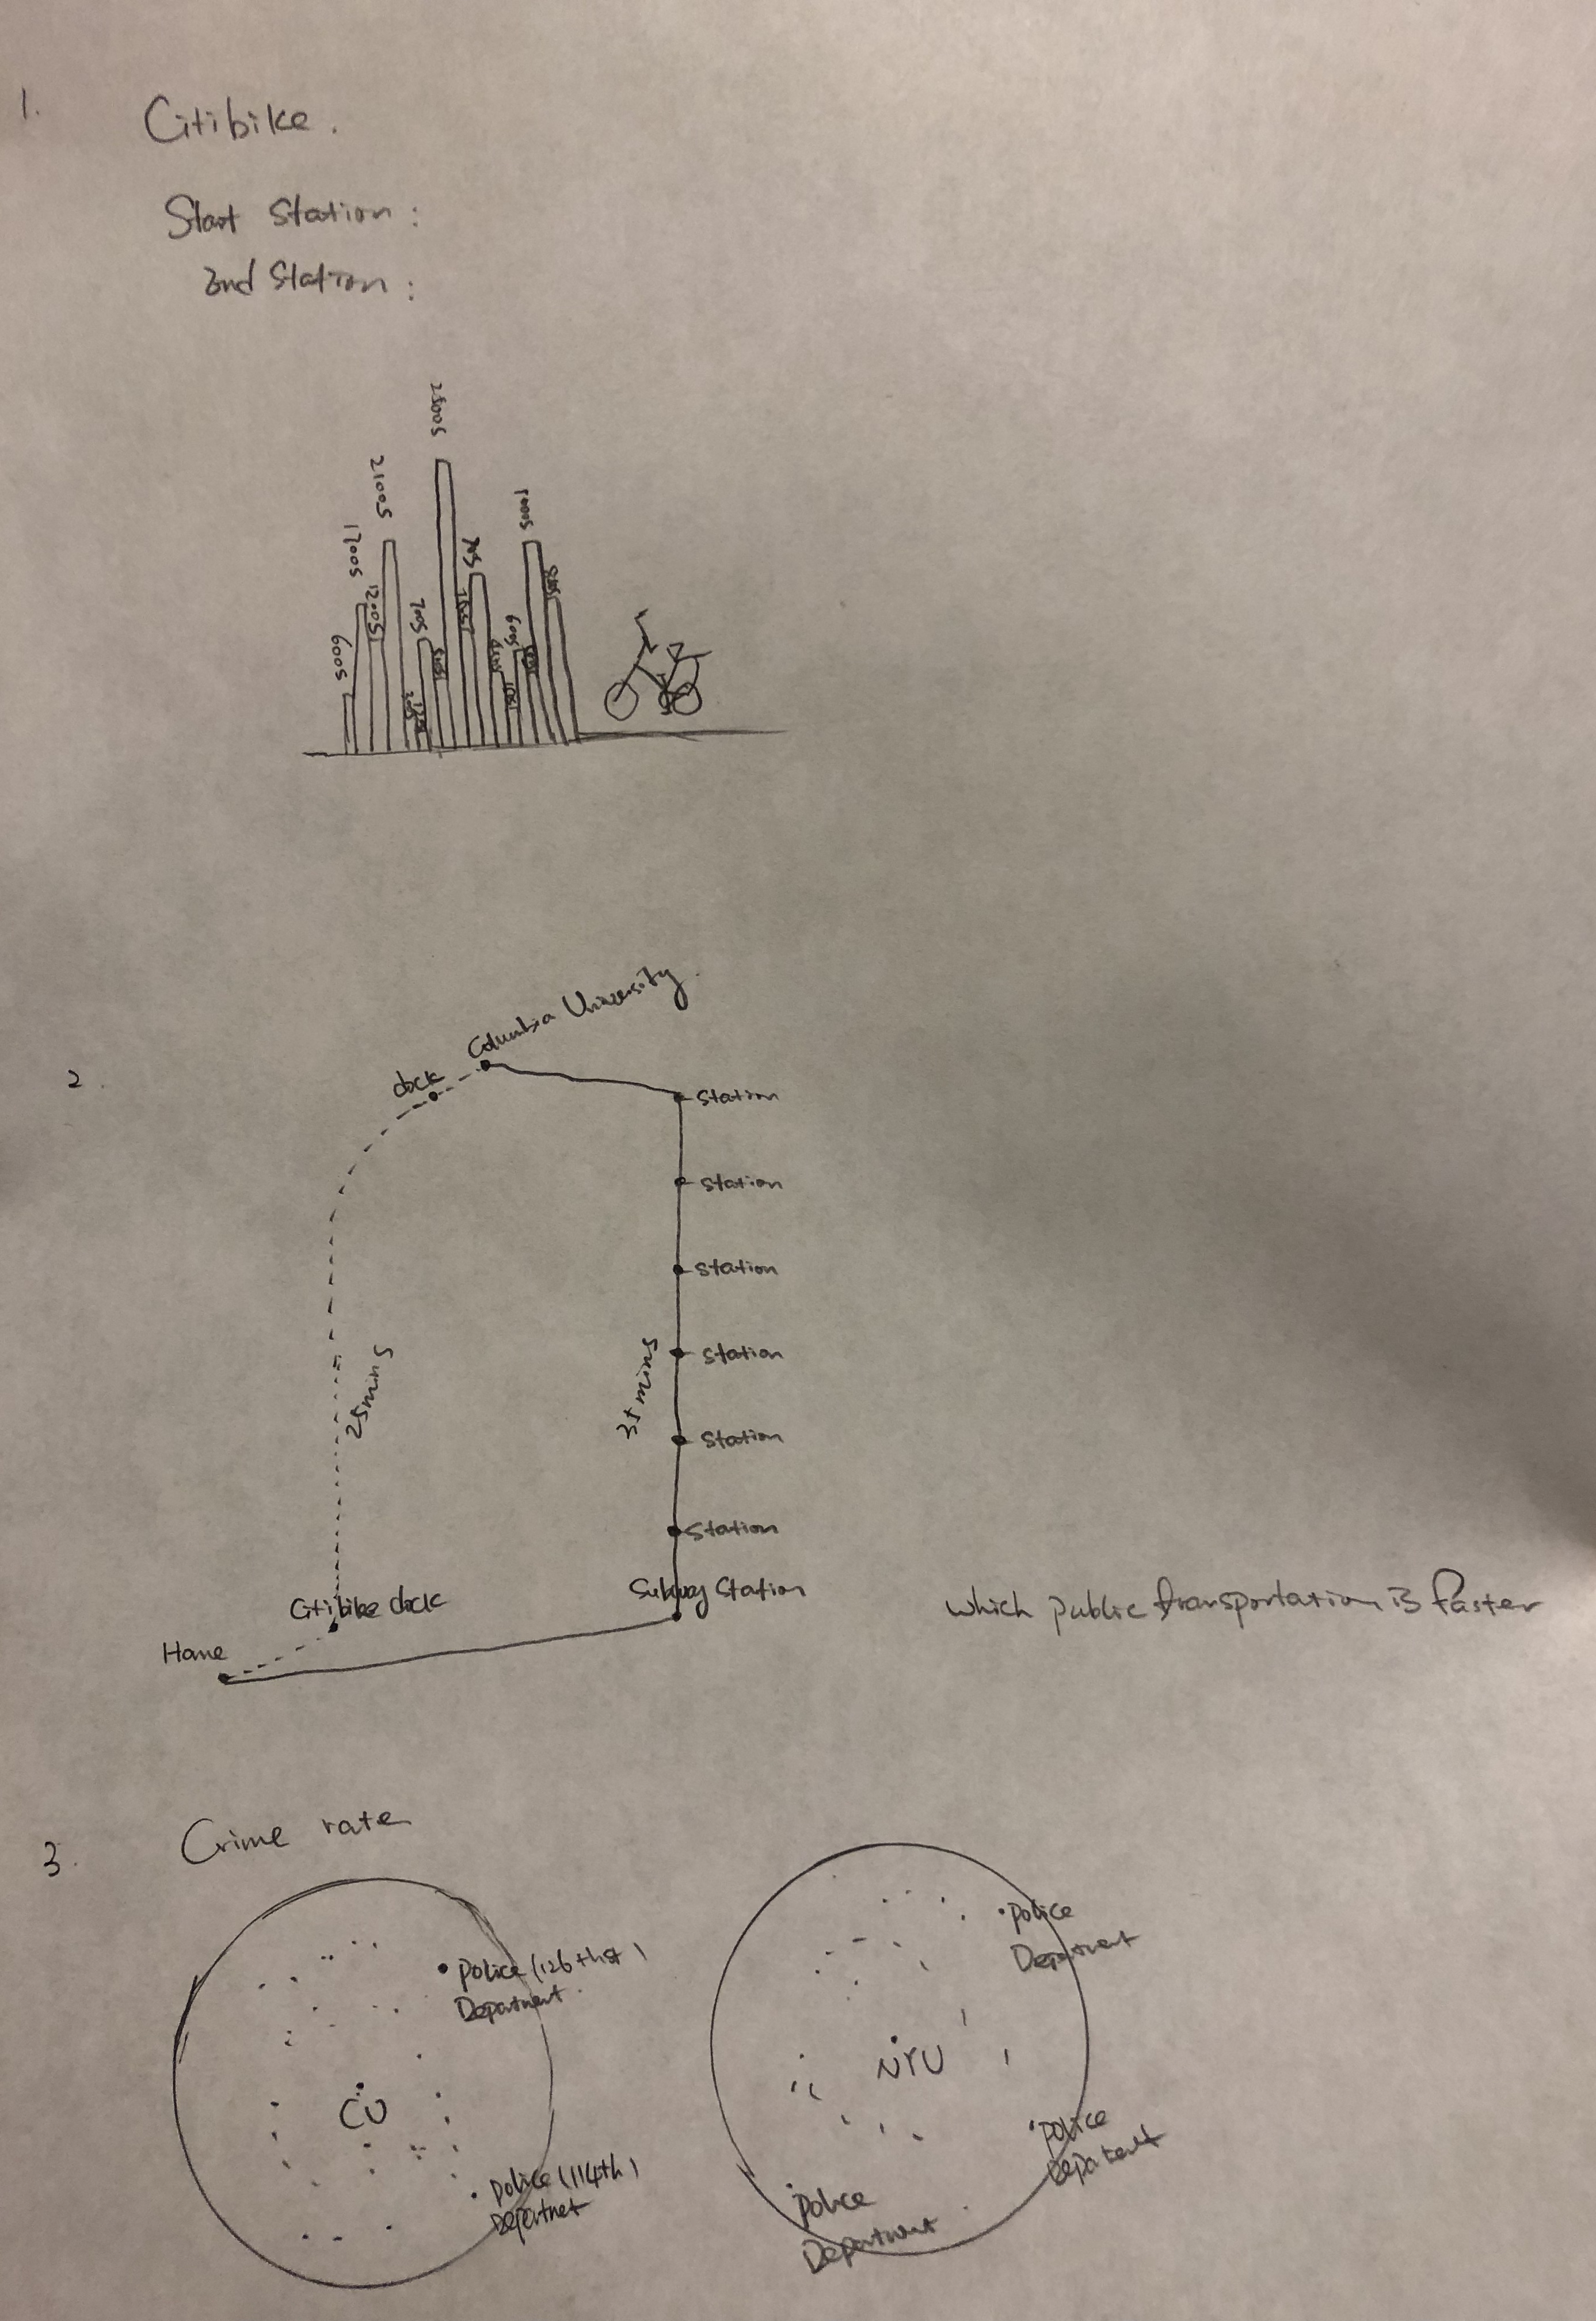 1.
Citibike.
Start Station:
2nd Station:
5009
50021
50021
50012
5002
50052
5006
5001
2.
Columbia University.
dock
Station
Station
Station
Station
Station
Station
25mins
35mins
Citibike dock
Subway Station
Home
which public transportation is faster
3.
Crime rate
Police (126thst)
Department.
CU
Police (114th)
Departnet
Police
Department
NYU
Police
Department
Police
Department